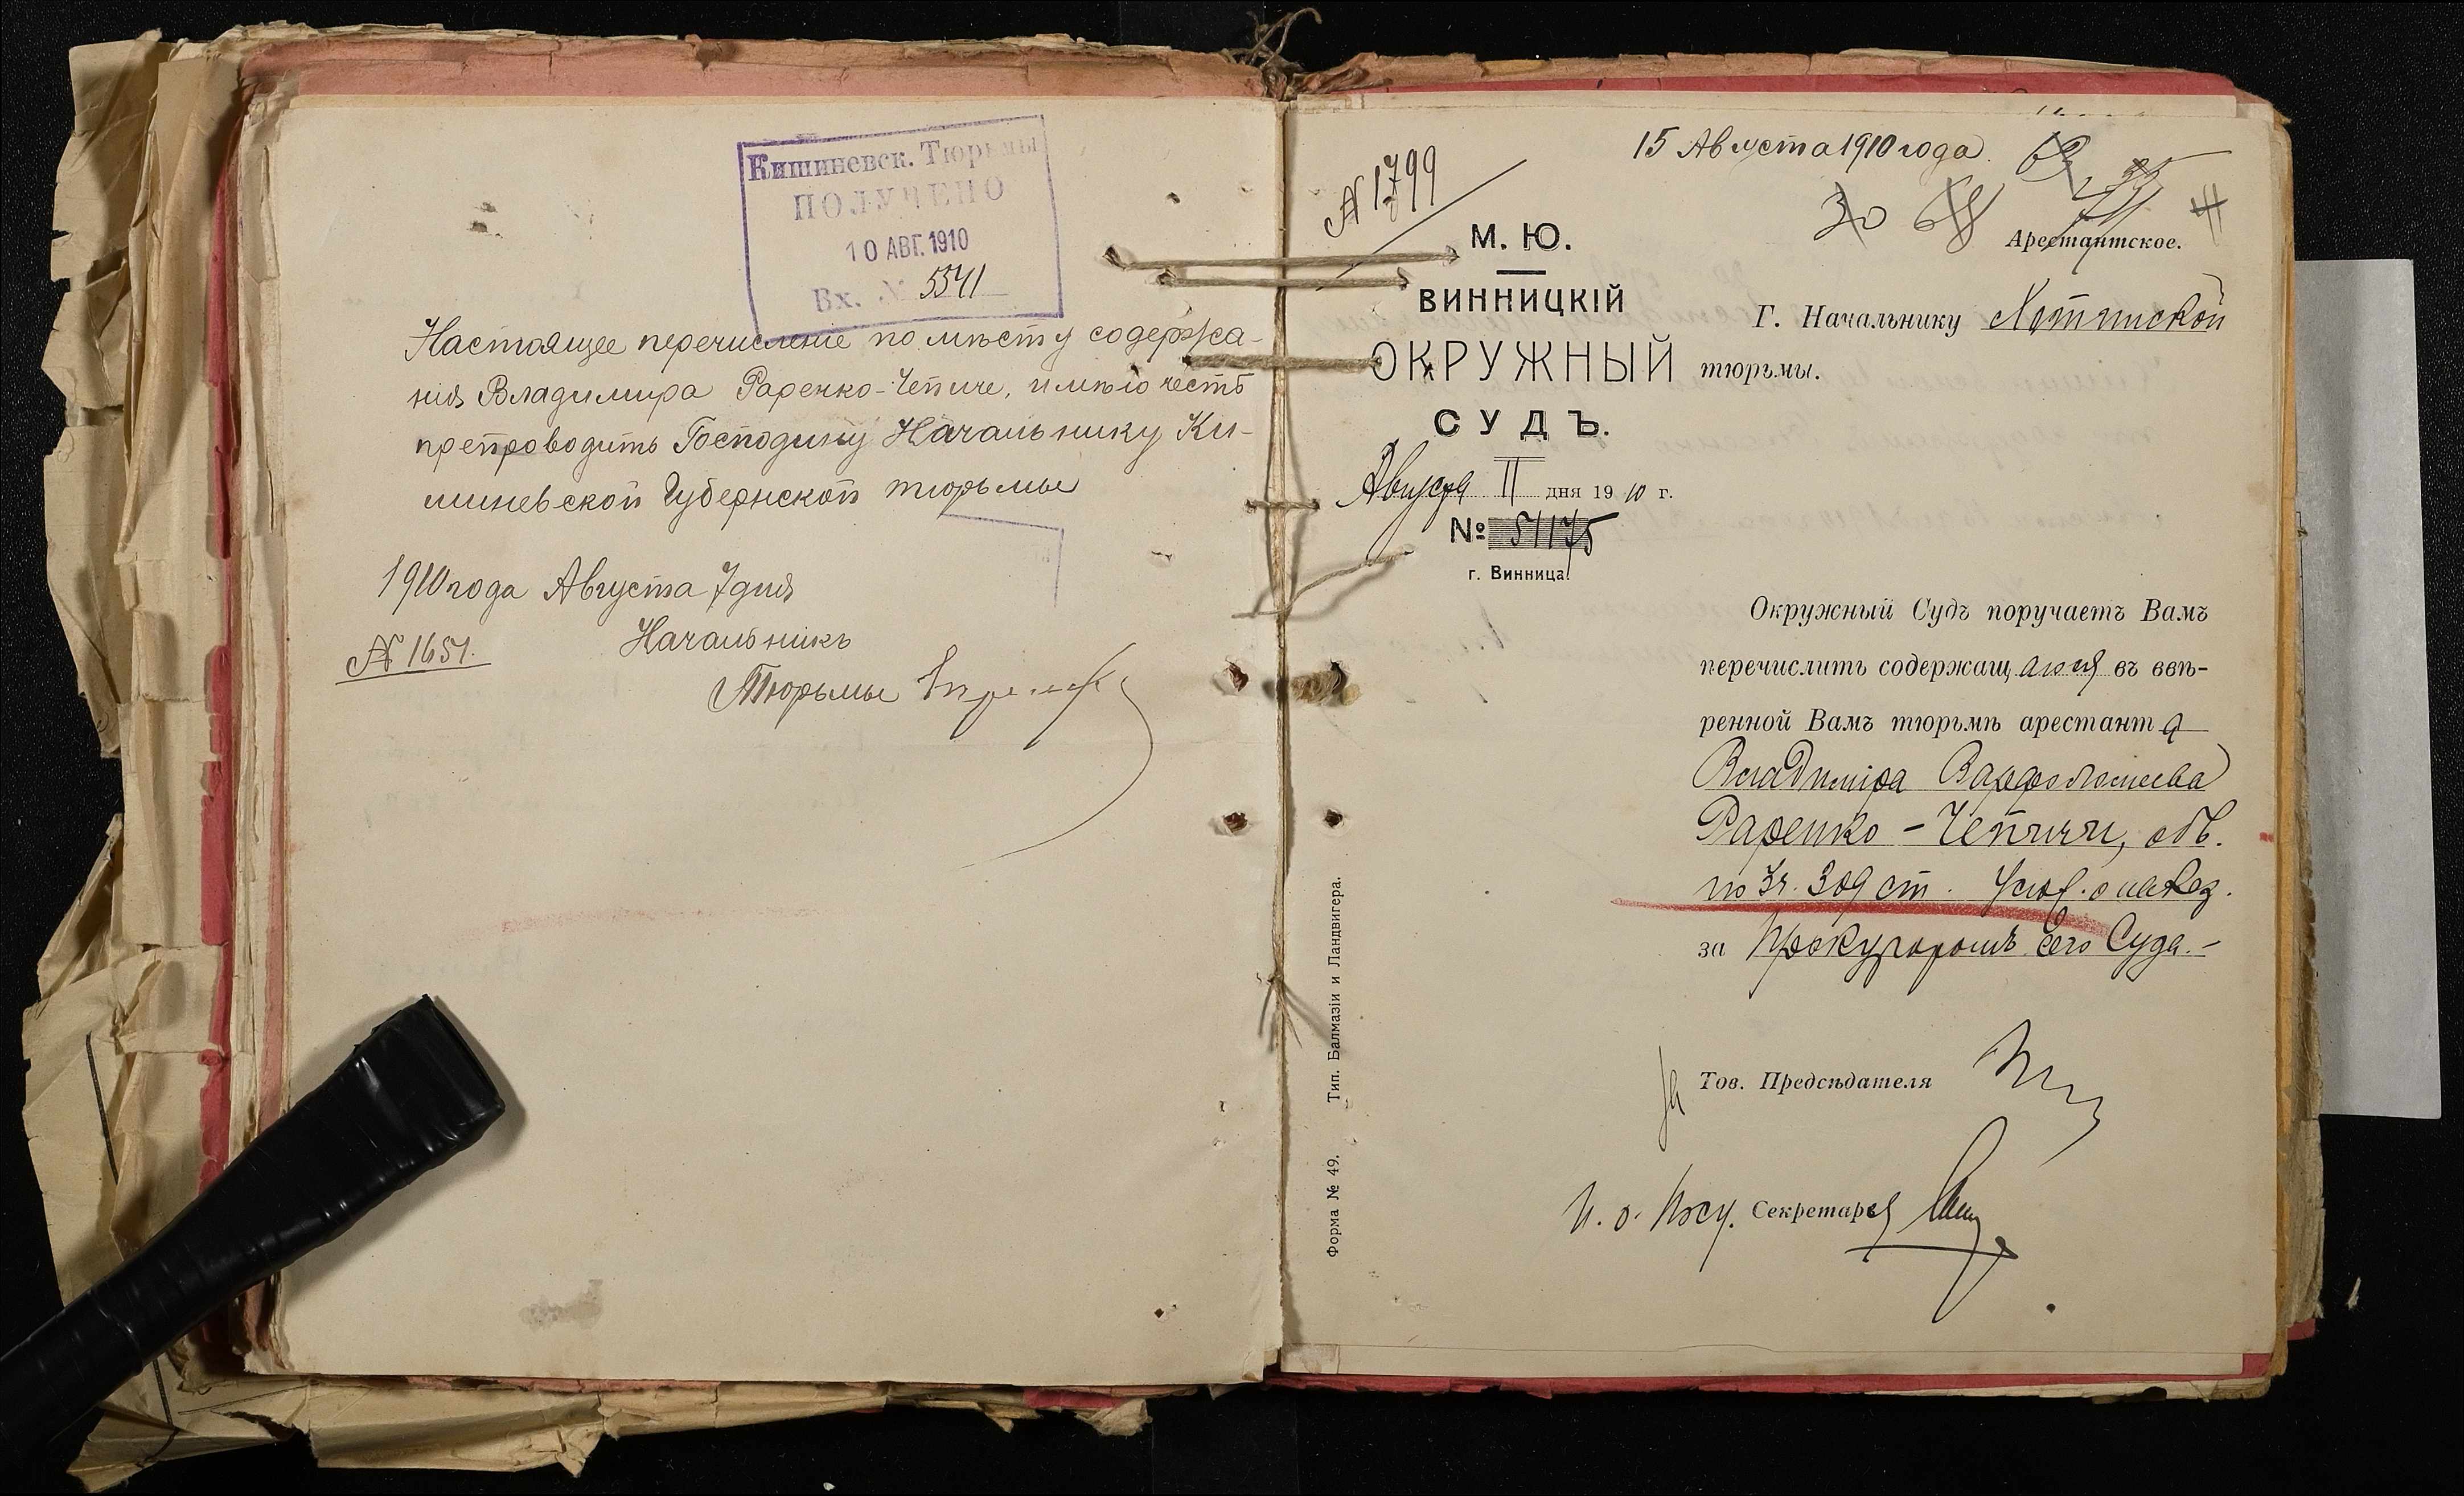 Кишиневск. Тюрьмы
ПОЛУЧЕНО
10 АВГ. 1910
Вх. № 5541
Настоящее перечисленіе по мѣсту содержа-
нія Владимира Раренко-Чепиче, имѣю честь
препроводить Господину Начальнику Ки-
шиневской Губернской тюрьмы
1910 года Августа 7 дня
№ 1651.
Начальникъ
Тюрьмы
15 Августа 1910 года.
№ 1799
30 68
Арестантское.
М. Ю.
ВИННИЦКІЙ
ОКРУЖНЫЙ
СУДЪ.
Августа 11 дня 1910 г.
№ 51175
г. Винница.
Г. Начальнику Хотинской
тюрьмы.
Окружный Судъ поручаетъ Вамъ
перечислить содержащагося въ ввѣ-
ренной Вамъ тюрьмѣ арестанта
Владиміра Варфоломеева
Раренко - Чепичи, обв.
по 3 ч. 309 ст. Улож. о наказ.
за Прокуроромъ сего Суда. -
За Тов. Предсѣдателя
И. о. Пом. Секретаря
Форма № 49. Тип. Балмазіи и Ландвигера.